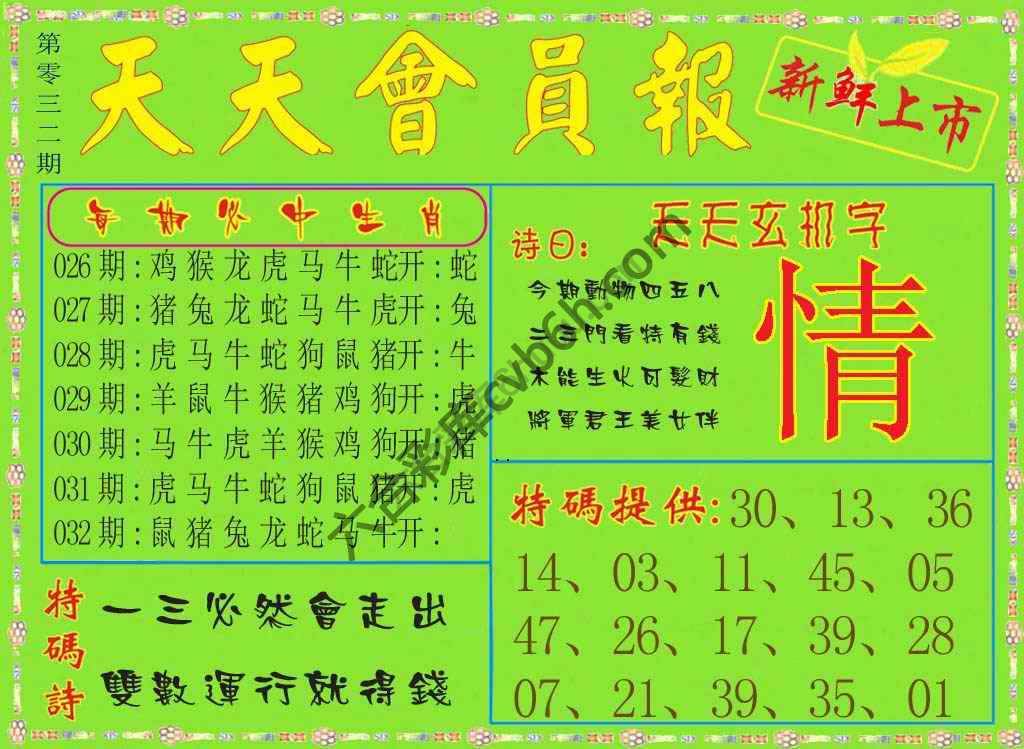 第零三二期
天天會員報
新鮮上市
每期必中生肖
026期:鸡猴龙虎马牛蛇开:蛇
027期:猪兔龙蛇马牛虎开:兔
028期:虎马牛蛇狗鼠猪开:牛
029期:羊鼠牛猴猪鸡狗开:虎
030期:马牛虎羊猴鸡狗开:猪
031期:虎马牛蛇狗鼠猪开:虎
032期:鼠猪兔龙蛇马牛开:
天天玄机字
诗曰:
今期動物四五八
二三門看特有錢
木能生火可髮財
將軍君王美女伴
情
特碼提供:30、13、36
14、03、11、45、05
47、26、17、39、28
07、21、39、35、01
特碼詩
一三必然會走出
雙數運行就得錢
六合彩库cvb6h.com